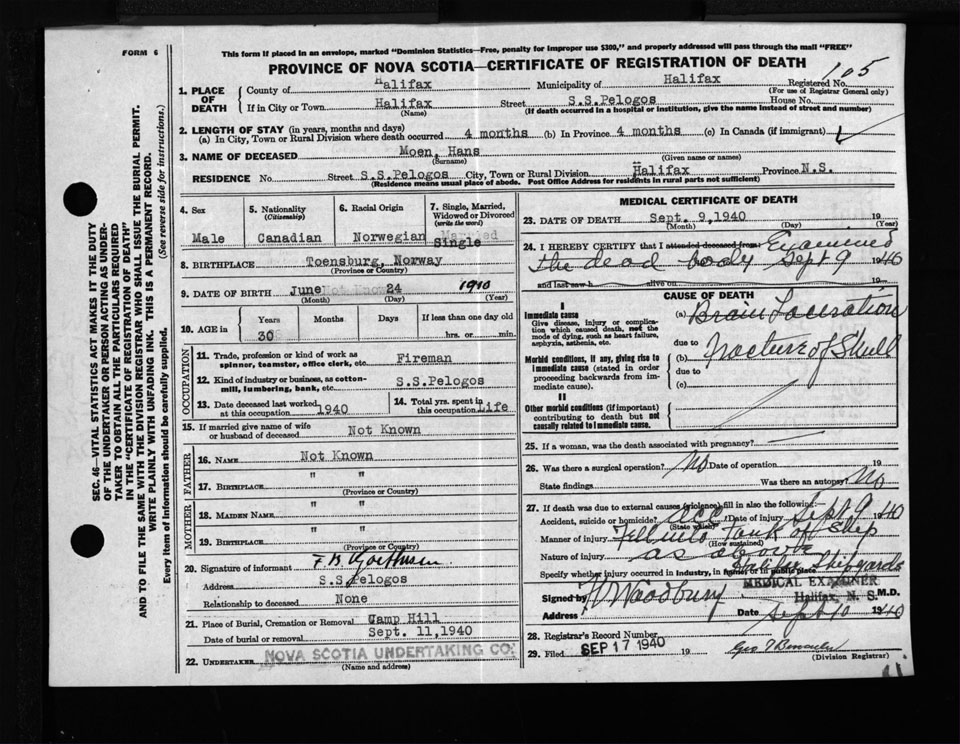 FORM 6
This form if placed in an envelope, marked "Dominion Statistics—Free, penalty for improper use $300," and properly addressed will pass through the mail "FREE"
PROVINCE OF NOVA SCOTIA—CERTIFICATE OF REGISTRATION OF DEATH
105
SEC. 46—VITAL STATISTICS ACT MAKES IT THE DUTY
OF THE UNDERTAKER OR PERSON ACTING AS UNDER-
TAKER TO OBTAIN ALL THE PARTICULARS REQUIRED
IN THE "CERTIFICATE OF REGISTRATION OF DEATH"
AND TO FILE THE SAME WITH THE DIVISION REGISTRAR WHO SHALL ISSUE THE BURIAL PERMIT.
WRITE PLAINLY WITH UNFADING INK. THIS IS A PERMANENT RECORD.
Every item of Information should be carefully supplied. (See reverse side for instructions.)
1. PLACE OF DEATH
County of Halifax Municipality of Halifax Registered No.
(For use of Registrar General only)
If in City or Town Halifax Street S.S.Pelogos House No.
(Name) (If death occurred in a hospital or institution, give the name instead of street and number)
2. LENGTH OF STAY (in years, months and days)
(a) In City, Town or Rural Division where death occurred 4 months (b) In Province 4 months (c) In Canada (if immigrant)
3. NAME OF DECEASED Moen, Hans
(Surname) (Given name or names)
RESIDENCE No. Street S.S.Pelogos City, Town or Rural Division Halifax Province N.S.
(Residence means usual place of abode. Post Office Address for residents in rural parts not sufficient)
4. Sex
Male
5. Nationality
(Citizenship)
Canadian
6. Racial Origin
Norwegian
7. Single, Married,
Widowed or Divorced
(write the word)
Married
Single
8. BIRTHPLACE Toensburg, Norway
(Province or Country)
9. DATE OF BIRTH June Not Know 24 1910
(Month) (Day) (Year)
10. AGE in
Years Months Days If less than one day old
30 hrs. or min.
OCCUPATION
11. Trade, profession or kind of work as
spinner, teamster, office clerk, etc. Fireman
12. Kind of industry or business, as cotton-
mill, lumbering, bank, etc. S.S.Pelogos
13. Date deceased last worked
at this occupation 1940
14. Total yrs. spent in
this occupation Life
15. If married give name of wife
or husband of deceased Not Known
FATHER
16. NAME Not Known
17. BIRTHPLACE " "
(Province or Country)
MOTHER
18. MAIDEN NAME " "
19. BIRTHPLACE " "
(Province or Country)
20. Signature of informant
Address S.S.Pelogos
Relationship to deceased None
21. Place of Burial, Cremation or Removal Camp Hill
Date of burial or removal Sept. 11,1940
22. UNDERTAKER NOVA SCOTIA UNDERTAKING CO.
(Name and address)
MEDICAL CERTIFICATE OF DEATH
23. DATE OF DEATH Sept. 9,1940 19
(Month) (Day) (Year)
24. I HEREBY CERTIFY that I attended deceased from: Examined
the dead body Sept 9 1940
and last saw h alive on 19
CAUSE OF DEATH
I
Immediate cause
Give disease, injury or complica-
tion which caused death, not the
mode of dying, such as heart failure,
asphyxia, asthenia, etc.
(a) Brain Laceration
due to
Morbid conditions, if any, giving rise to
immediate cause (stated in order
proceeding backwards from im-
mediate cause).
(b) Fracture of Skull
due to
(c)
II
Other morbid conditions (if important)
contributing to death but not
causally related to immediate cause.
25. If a woman, was the death associated with pregnancy?
26. Was there a surgical operation? No Date of operation 19
State findings Was there an autopsy? No
27. If death was due to external causes (violence) fill in also the following:
Accident, suicide or homicide? acc Date of injury Sept 9 1940
(State which)
Manner of injury Fell into Tank of Ship
(How sustained)
Nature of injury as above
Specify whether injury occurred in industry, in home, or in public place Halifax Shipyards
Signed by Woodbury M.D.
MEDICAL EXAMINER
Halifax, N. S.
Address Date Sept 10 1940
28. Registrar's Record Number
29. Filed SEP 17 1940 19
(Division Registrar)